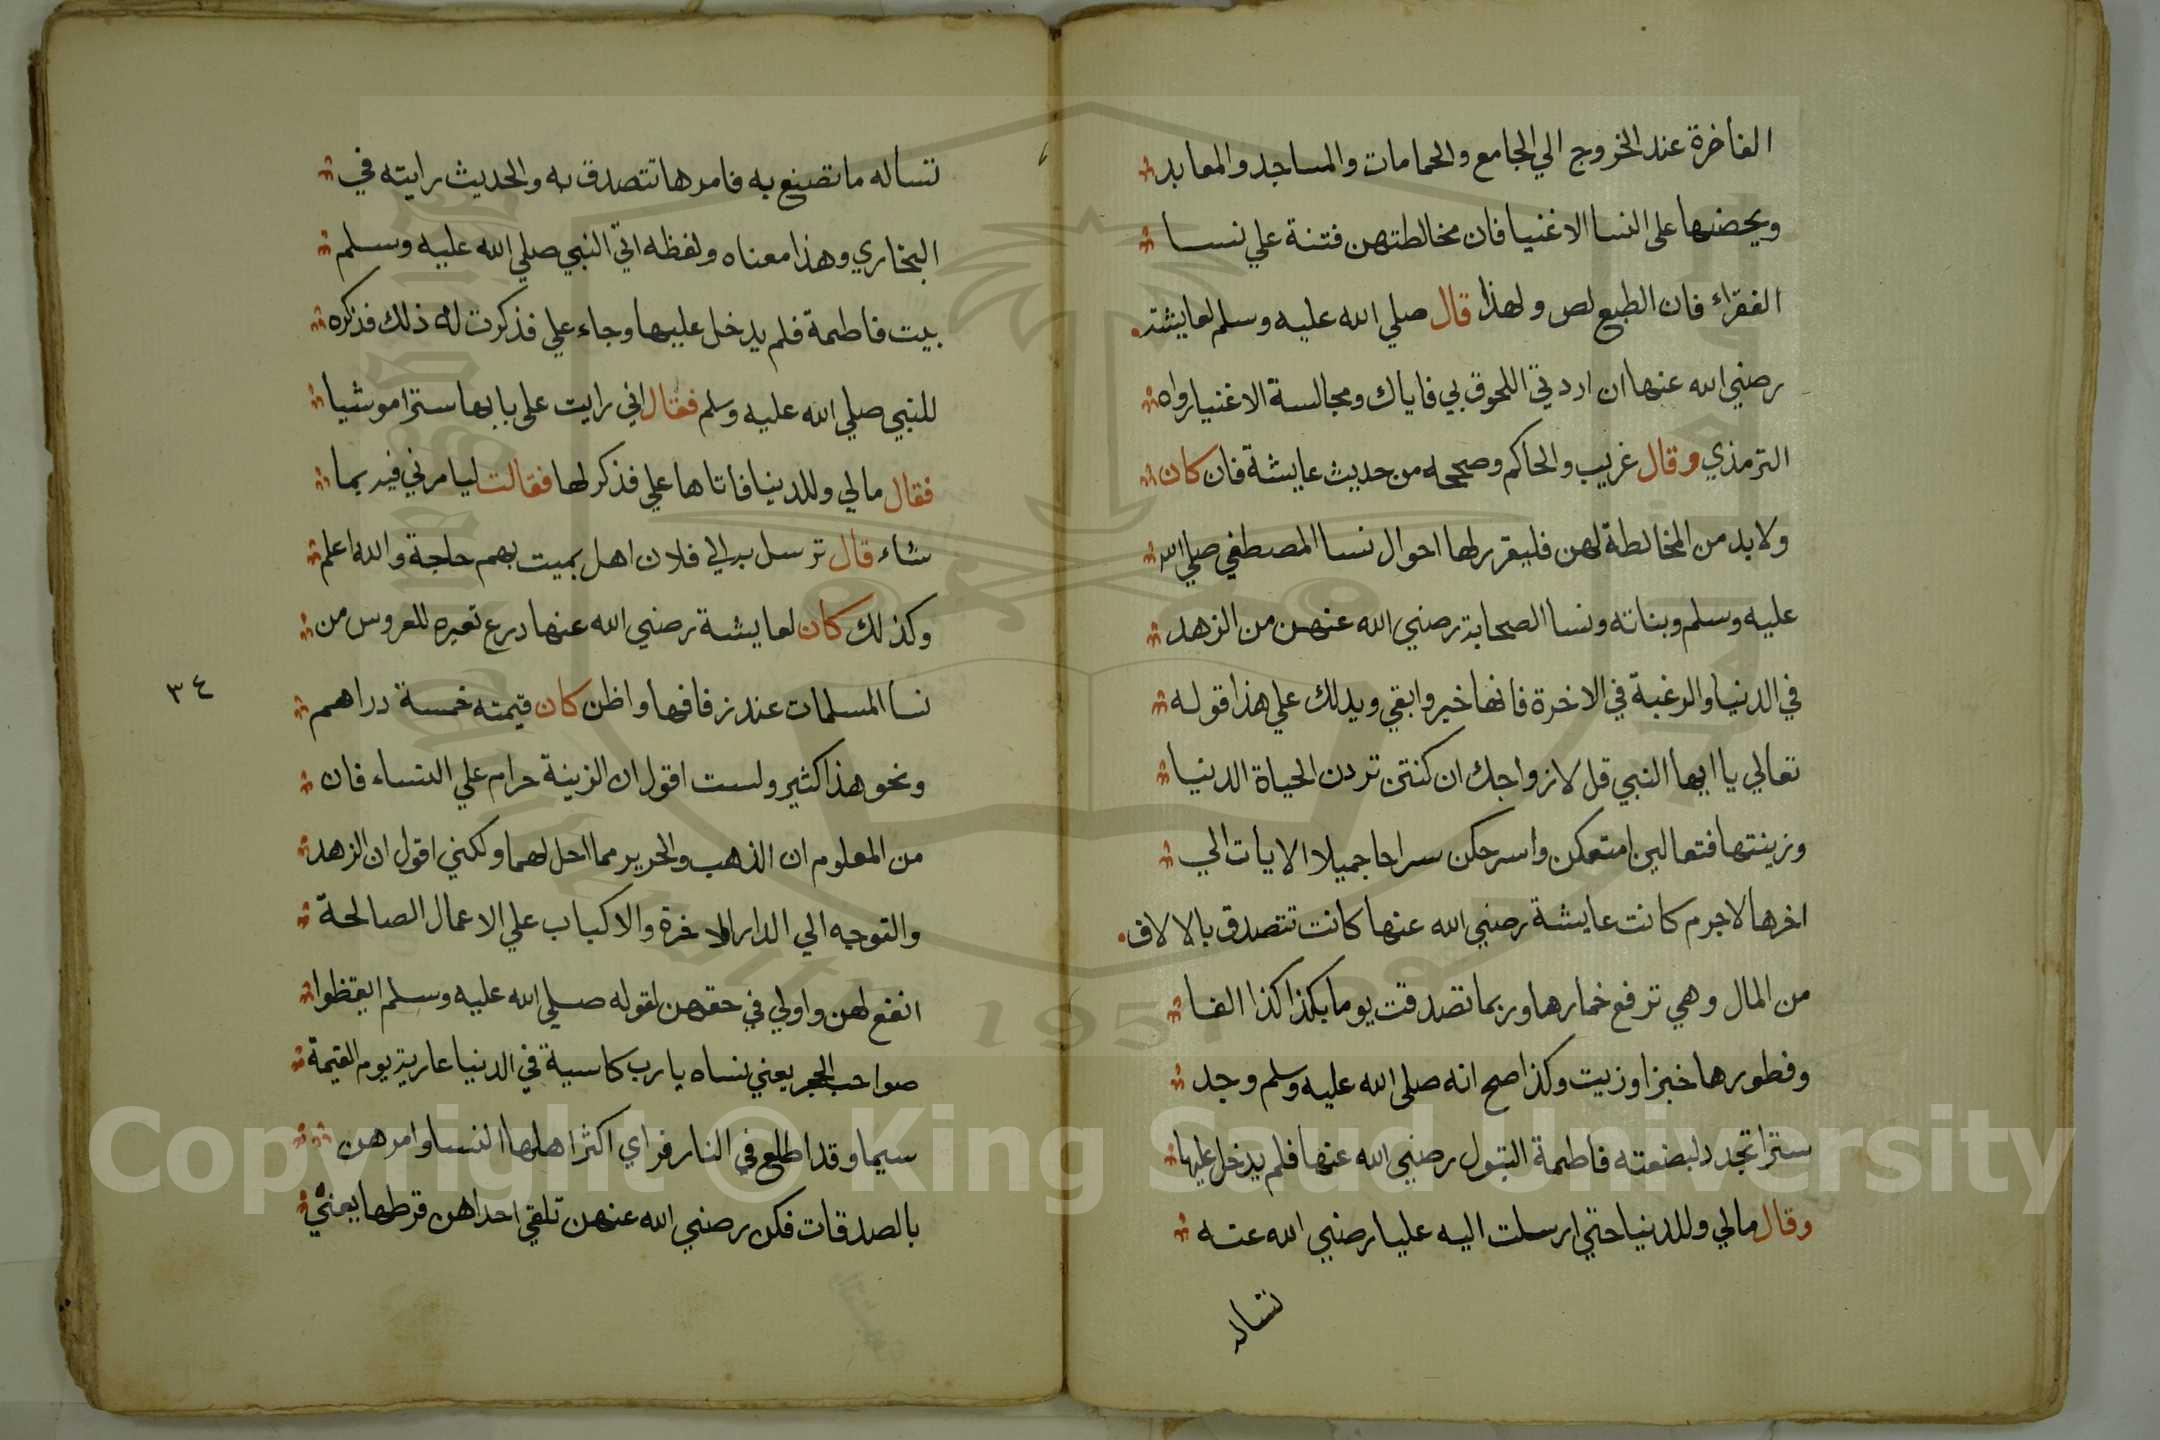 الفاخرة عند الخروج الي الجامع والحمامات والمساجد والمعابد
ويحضها على النسا الاغنيا فان مخالطتهن فتنة علي نسا
الفقراء فان الطبع لص ولهذا قال صلي الله عليه وسلم لعايشة
رضي الله عنها ان اردتي اللحوق بي فاياك ومجالسة الاغنيا رواه
الترمذي وقال غريب والحاكم وصححه من حديث عايشة فان كان
ولابد من المخالطة لهن فليقرر لها احوال نسا المصطفي صلي الله
عليه وسلم وبناته ونسا الصحابة رضي الله عنهن من الزهد
في الدنيا والرغبة في الاخرة فانها خير وابقي ويدلك علي هذا قوله
تعالي يا ايها النبي قل لازواجك ان كنتن تردن الحياة الدنيا
وزينتها فتعالين امتعكن واسرحكن سراحا جميلا الايات الي
اخرها لاجرم كانت عايشة رضي الله عنها كانت تتصدق بالالاف
من المال وهي ترفع خمارها وربما تصدقت يوما بكذا كذا الفا
وفطورها خبزا وزيت وكذا صح انه صلى الله عليه وسلم وجد
سترا تجدد لبضعته فاطمة البتول رضي الله عنها فلم يدخل عليها
وقال مالي وللدنيا حتي ارسلت اليه عليا رضي الله عنه
تساله
تساله ما تصنع به فامرها تتصدق به والحديث رايته في
البخاري وهذا معناه ولفظه اتي النبي صلي الله عليه وسلم
بيت فاطمة فلم يدخل عليها وجاء علي فذكرت له ذلك فذكره
للنبي صلي الله عليه وسلم فقال اني رايت على بابها سترا موشيا
فقال مالي وللدنيا فاتاها علي فذكر لها فقالت ليامرني فيه بما
شاء قال ترسل به الي فلان اهل بميت بهم حاجة والله اعلم
وكذلك كان لعايشة رضي الله عنها درع تعيره للعروس من
نسا المسلمات عند زفافها واظن كان قيمته خمسة دراهم
ونحو هذا كثير ولست اقول ان الزينة حرام علي النساء فان
من المعلوم ان الذهب والحرير مما احل لهما ولكني اقول ان الزهد
والتوجه الي الدار الاخرة والاكباب علي الاعمال الصالحة
انفع لهن واولي في حقهن لقوله صلي الله عليه وسلم ايقظوا
صواحب الحجر يعني نساه يارب كاسية في الدنيا عارية يوم القيمة
سيما وقد اطلع في النار فراي اكثر اهلها النسا وامرهن
بالصدقات فكن رضي الله عنهن تلقي احداهن قرطها يعني
٣٤
Copyright © King Saud University
1957